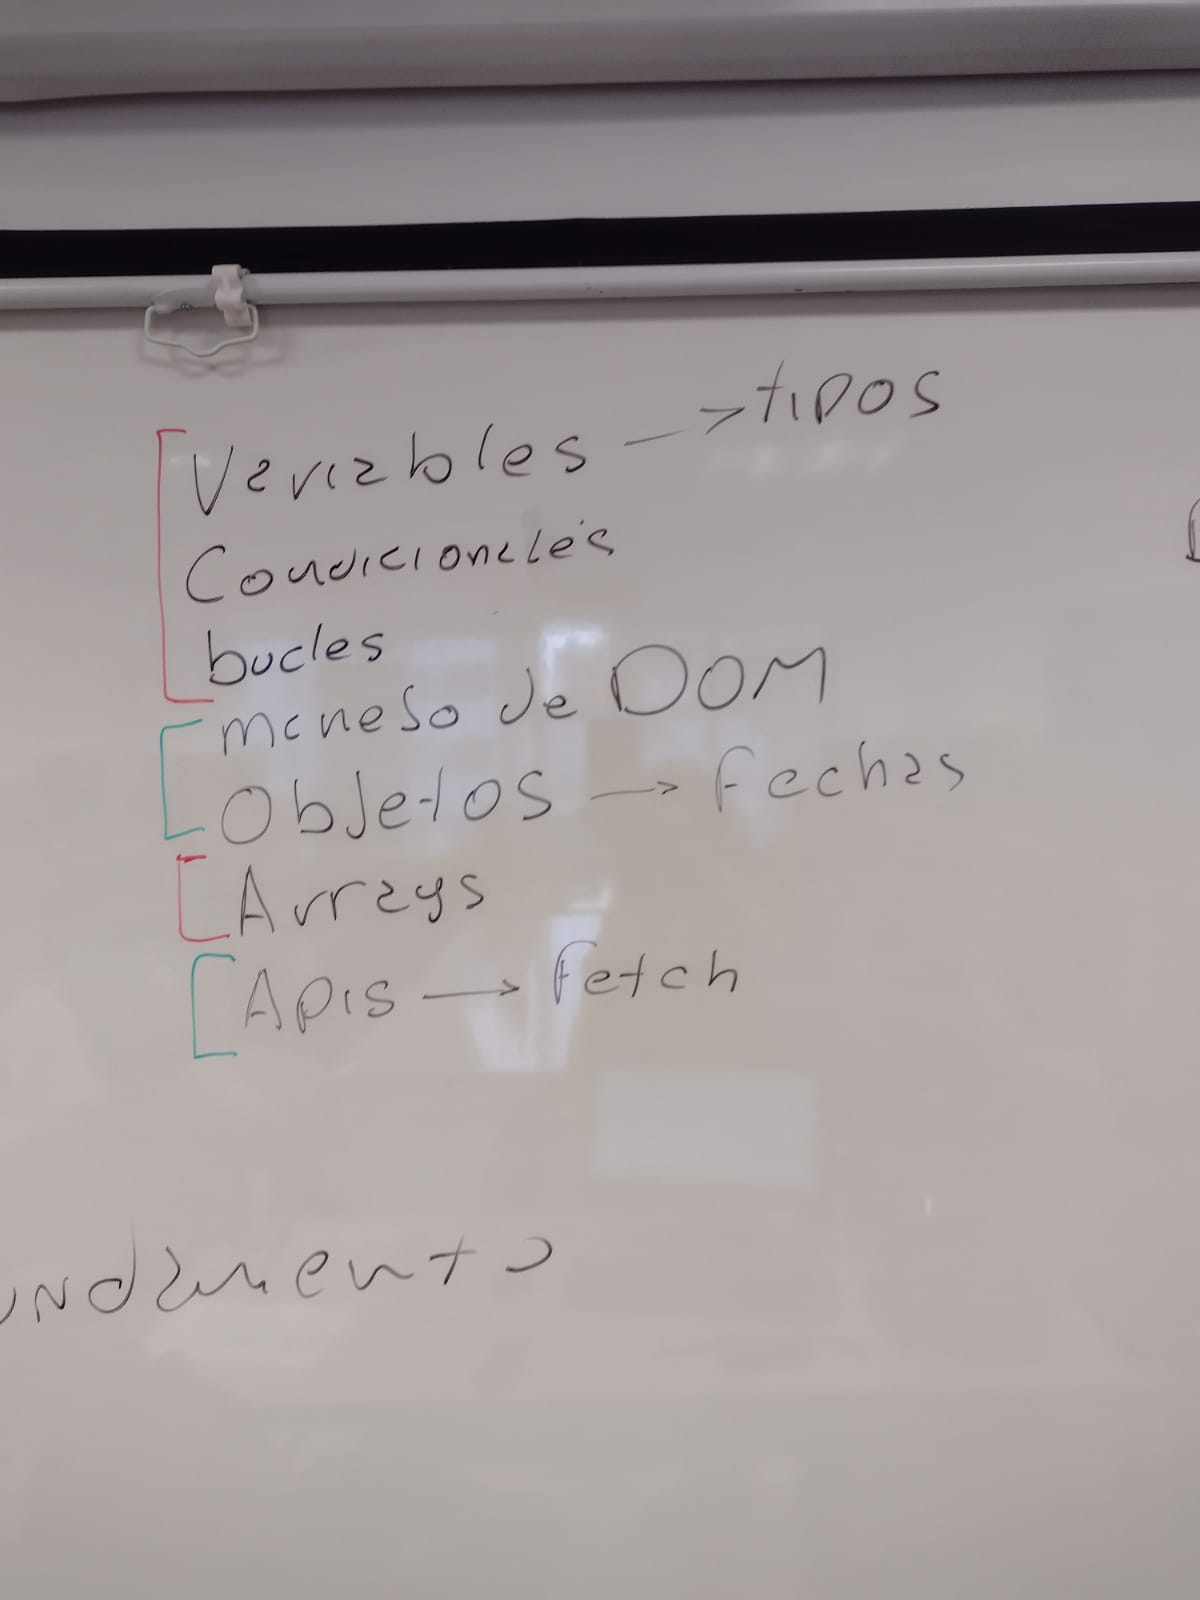 Variables -> tipos
Condicionales
bucles
maneJo de DOM
ObJetos -> Fechas
Arrays
Apis -> Fetch